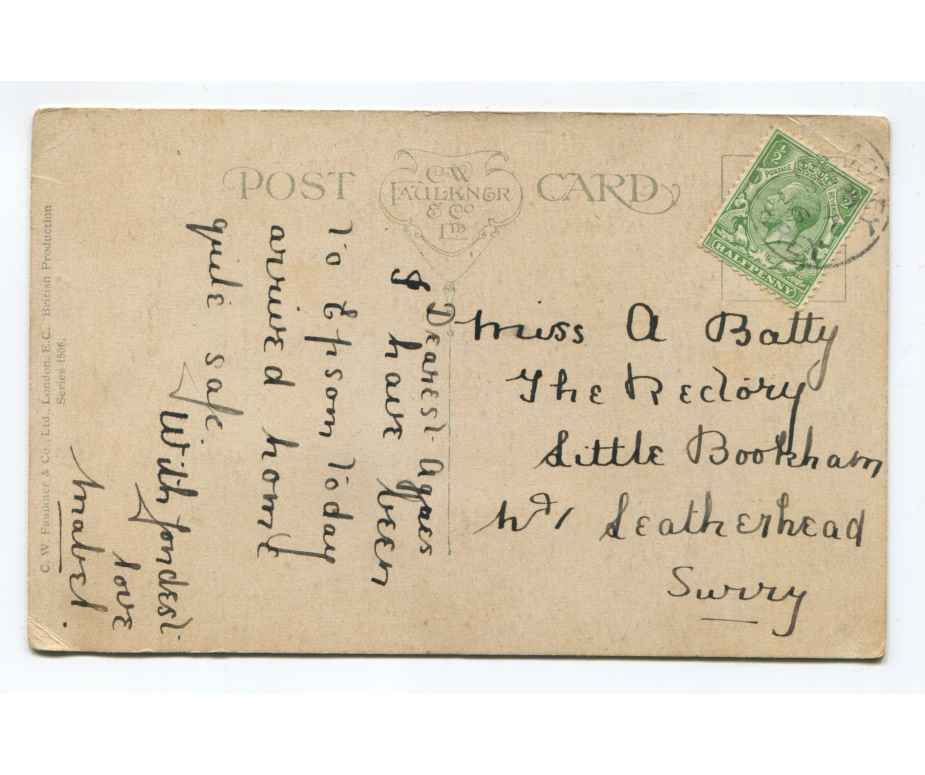 POST CARD
C.W.
FAULKNER
& Co
LTD
C. W. Faulkner & Co., Ltd., London, E.C. British Production
Series 1506.
½ ½
POSTAGE
HALFPENNY
Dearest Agnes
I have been
to Epsom today
arrived home
quite safe
With fondest
love
Mabel.
Miss A Batty
The Rectory
Little Bookham
Nr Leatherhead
Surry